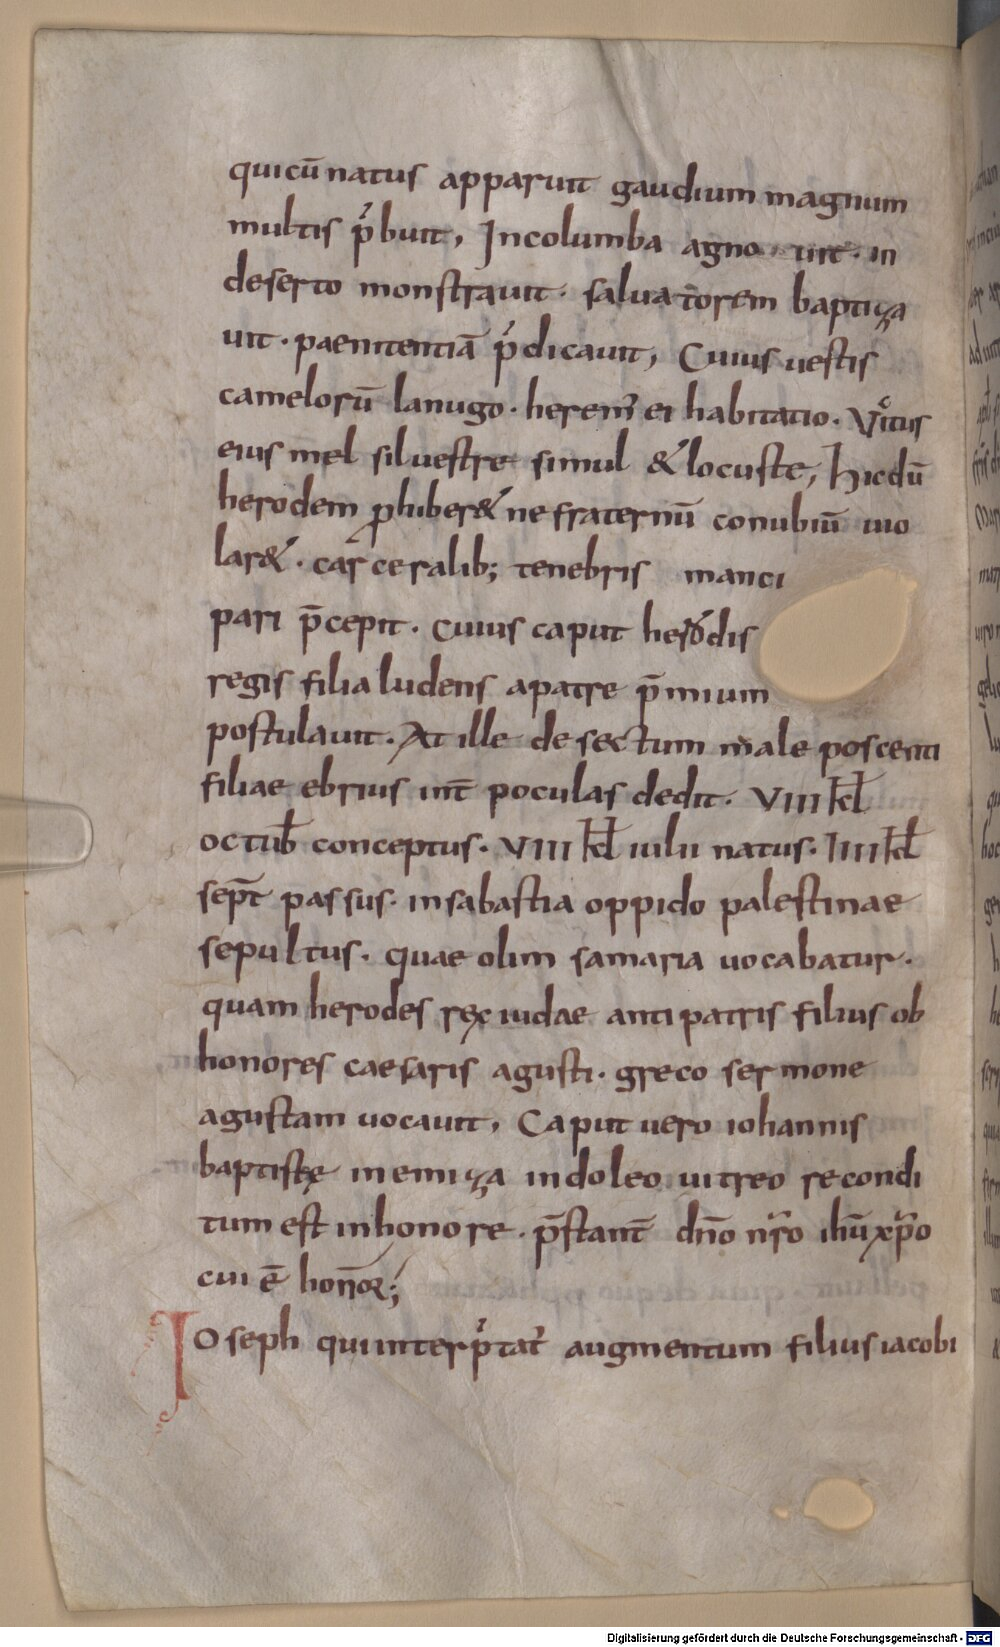 qui cū natus apparuit gaudium magnum
multis p̄buit, In columba agno uit · in
deserto monstrauit · saluatorem baptiza
uit · paenitentiā p̄dicauit, Cuius uestis
camelorū lanugo · herem᾽ ei habitatio · Victus
eius mel siluestre simul & locuste, Hic dū
herodem ꝓhiber& ne fraternū conubiū uio
lar& · carceralib; tenebris manci
pari p̄cepit · cuius caput herodis
regis filia ludens a patre p̄mium
postulauit · At ille desectum male poscenti
filiae ebrius int̄ poculas dedit · VIII kł
octub̄ conceptus · VIII kł iulii natus · IIII kł
sep̄t passus · in sabastia oppido palestinae
sepultus · quae olim samaria uocabatur ·
quam herodes rex iudae antipatris filius ob
honores caesaris agusti · greco sermone
agustam uocauit, Caput uero iohannis
baptistę in emiza in doleo uitreo recondi
tum est in honore · p̄stant̄ dn̄o nr̄o ihū xp̄o
cui ē honor;
Ioseph qui interp̄tat᾽ augmentum filius iacobi
Digitalisierung gefördert durch die Deutsche Forschungsgemeinschaft - DFG